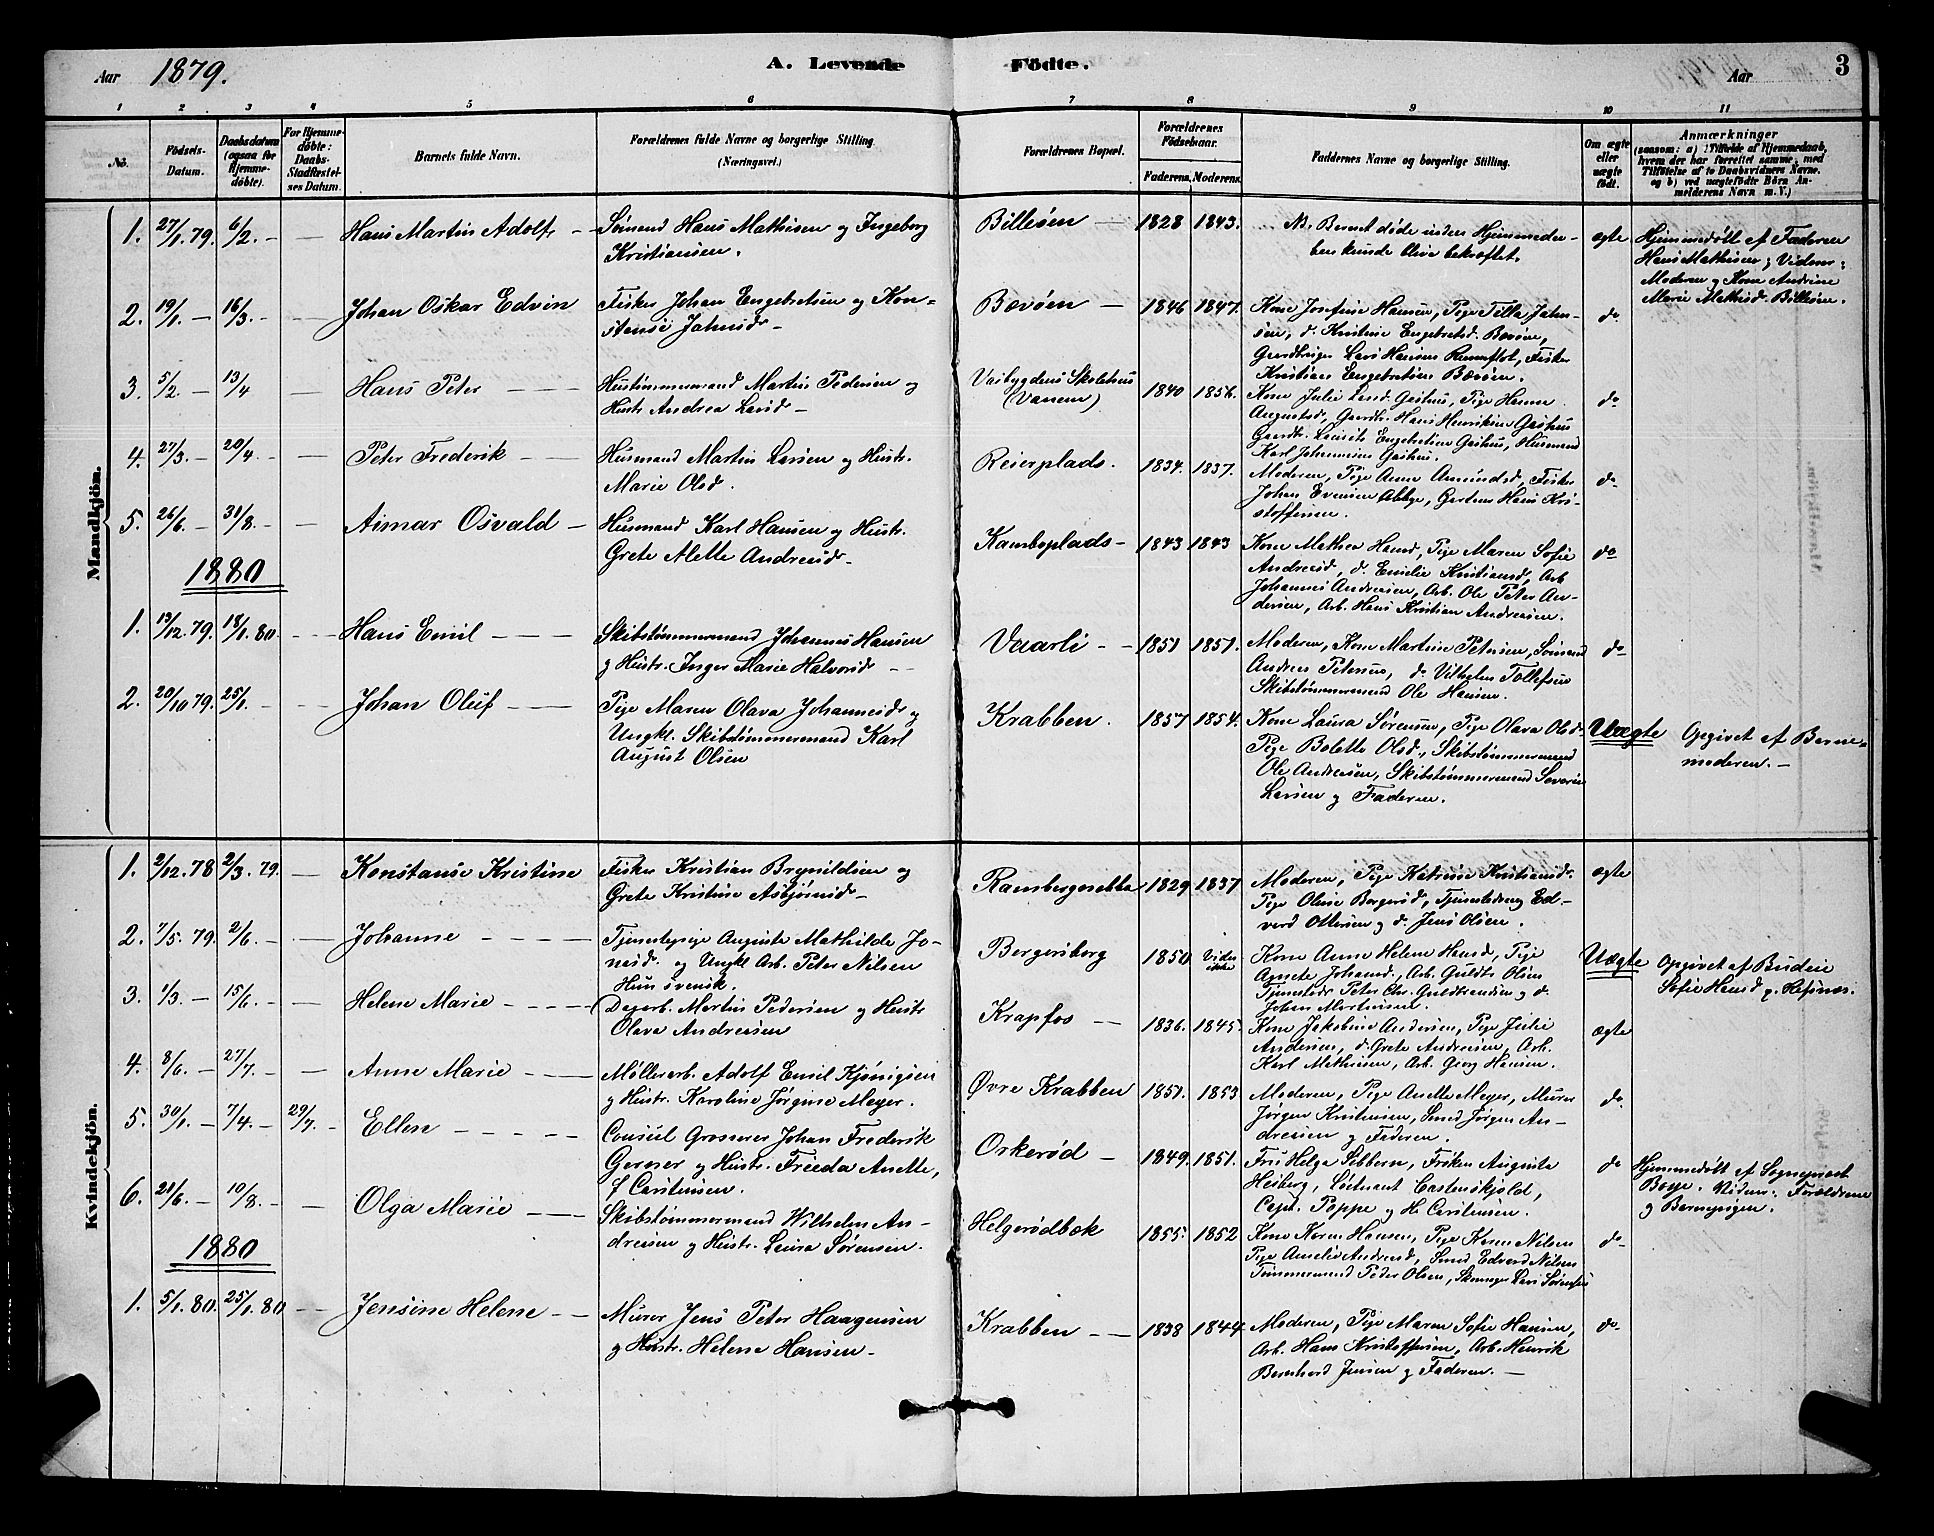 Aar 1879. A. Levende Födte. Aar 3
1 2 3 4 5 6 7 8 9 10 11
No. Födsels-Datum. Daabsdatum (ogsaa for Hjemmedöbte). For Hjemmedöbte: Daabs-Stadfæstelses Datum. Barnets fulde Navn. Forældrenes fulde Navne og borgerlige Stilling (Næringsvei.) Forældrenes Bopæl. Forældrenes Födselsaar. Faderens. Moderens. Faddernes Navne og borgerlige Stilling. Om ægte eller uægte födt. Anmærkninger (saasom: a) i Tilfælde af Hjemmedaab, hvem der har forrettet samme, med Tilföielse af to Daabsvidners Navne, og b) ved uægtefödte Börn Anmelderens Navn m. V.)
Mandkjön.
1. 27/1. 79. 6/2. - — Hans Martin Adolf — Sömand Hans Mathisen og Ingeborg
Kristiansen.
Billeöen — 1828 1843. NB. Barnet döde inden Hjemmedaa-
ben kunde blive bekræftet.
ægte Hjemmedöbt af Faderen
Hans Mathisen; Vidner:
Moderen og Kone Andrine
Marie Mathisd. Billeöen.
2. 19/1. — 16/3. - — Johan Oskar Edvin Fisker Johan Engebretsen og Kon-
stanse Jahnsd. -
Bævöen — 1846 1847. Kone Josefine Hansen, Pige Tilla Jahn-
sen, d. Kristine Engebretsd. Bævöen,
Gaardbruger Lars Hansen Rammeflot, Fisker
Kristian Engebretsen Bævöen.
do
3. 5/2. - 13/4 — Hans Peter — Hustömmermand Martin Pedersen og
Hustr. Andrea Larsd. -
Vaibygdens Skolehus
(Vanem)
1840 1856. Kone Julie Larsd. Gashus, Pige Hanna
Augustsd., Gaardbr. Hans Henriksen Gashus
Gaardbr. Lauritz Engebretsen Gashus, Husmand
Karl Johannesen Gashus.
do
4. 27/3. - 20/4. — Peter Frederik — Husmand Martin Larsen og Hustr.
Marie Olsd.
Reierplads. 1834. 1837. Moderen, Pige Anne Amundsd., Fisker
Johan Evensen Abbye, Gartner Hans Kri-
stoffersen.
do
5. 26/6. - 31/8. - — Aimar Osvald — Husmand Karl Hansen og Hustr.
Grete Alette Andreasd. -
Kamboplads - 1843 1843 Kone Mathea Hansd., Pige Maren Sofie
Andreasd., d. Emilie Kristiansd., Arb.
Johannes Andreasen, Arb. Ole Peter An-
dersen, Arb. Hans Kristian Andreasen.
do
1880
1. 13/12. 79. 18/1. 80. — Hans Emil — Skibstömmermand Johannes Hansen
og Hustr. Inger Marie Halvorsd. —
Vaarli - - 1851 1851. Moderen, Kone Martine Petersen, Sömand
Andreas Petersen, d. Vilhelm Tollefsen
Skibstömmermand Ole Hansen.
do
2. 20/10 79. 25/1. - — Johan Oluf — Pige Maren Olava Johannesd. og
Ungkl. Skibstömmermand Karl
August Olsen
Krabben. 1857 1854. Kone Laura Sörensen, Pige Olava Olsd.
Pige Bolette Olsd., Skibstömmermand
Ole Andreasen, Skibstömmermand Severin
Larsen og Faderen.
Uægte Opgivet af Barne-
moderen. —
Kvindekjön.
1. 2/12. 78 2/3. 79. — Konstanse Kristine Fisker Kristian Brynildsen og
Grete Kristine Asbjörnsd. -
Rambergsætta 1829 1837 Moderen, Pige Katrine Kristiansd.
Pige Oline Borgeröd, Tjenestedreng Ed-
vard Ottersen og d. Jens Olsen.
ægte
2. 7/5. 79. 2/6. - — Johanne — Tjenestepige Augusta Mathilde Jo-
nasd. og Ungkl. Arb. Peter Nilsen
Hun svensk.
Bergersborg 1850 Vides ikke Kone Anne Helene Hansd., Pige
Anette Johansd., Arb. Guldbr. Olsen
Tjenestedr. Peter Chr. Guldbrandsen og d.
Johan Martinsen.
Uægte Opgivet af Budeie
Sofie Hansd. p. Refsnæs.
3. 1/3. - 15/6. - — Helene Marie — Dagarb. Martin Pedersen og Hustr.
Olava Andreasen
Krapfos — 1836. 1845. Kone Jakobine Andersen, Pige Julie
Andersen, d. Grete Andreasen, Arb.
Karl Mathisen, Arb. Georg Hansen.
ægte
4. 8/6. - 27/7. - — Anne Marie — Möllerarb. Adolf Emil Kjönigsen
og Hustr. Karoline Jörgine Meyer.
Övre Krabben 1851. 1853 Moderen, Pige Anette Meyer, Murer
Jörgen Kristensen, Smed Jörgen An-
dresen og Faderen.
do
5. 30/1. — 7/4. — 29/7. Ellen — Consul Grosserer Johan Frederik
Gerner og Hustr. Frieda Anette,
f. Carstensen.
Orkeröd — 1849. 1851. Fru Helga Sibbern, Fröken Augusta
Heiberg, Löitnant Castenskjold,
Capt. Poppe og H. Carstensen.
do Hjemmedöbt af Sogneprest
Bassöe. Vidner: Forældrene
og Barnepigen.
6. 21/6. — 10/8. - — Olga Marie — Skibstömmermand Wilhelm An-
dresen og Hustr. Laura Sörensen.
Helgerödbæk 1855. 1852 Kone Karen Hansen, Pige Karen Nilsen
Pige Amelie Andreasd., Smed Edvard Nilsen
Tömmermand Peder Olsen, Lars Sörensen
do
1880
1. 5/1. 80. 25/1. 80 — Jensine Helene — Murer Jens Peter Haagensen
og Hustr. Helene Hansen -
Krabben — 1838 1844 Moderen, Pige Maren Sofie Hansen,
Arb. Hans Kristoffersen, Arb. Henrik
Bernhard Jensen og Faderen. —
do